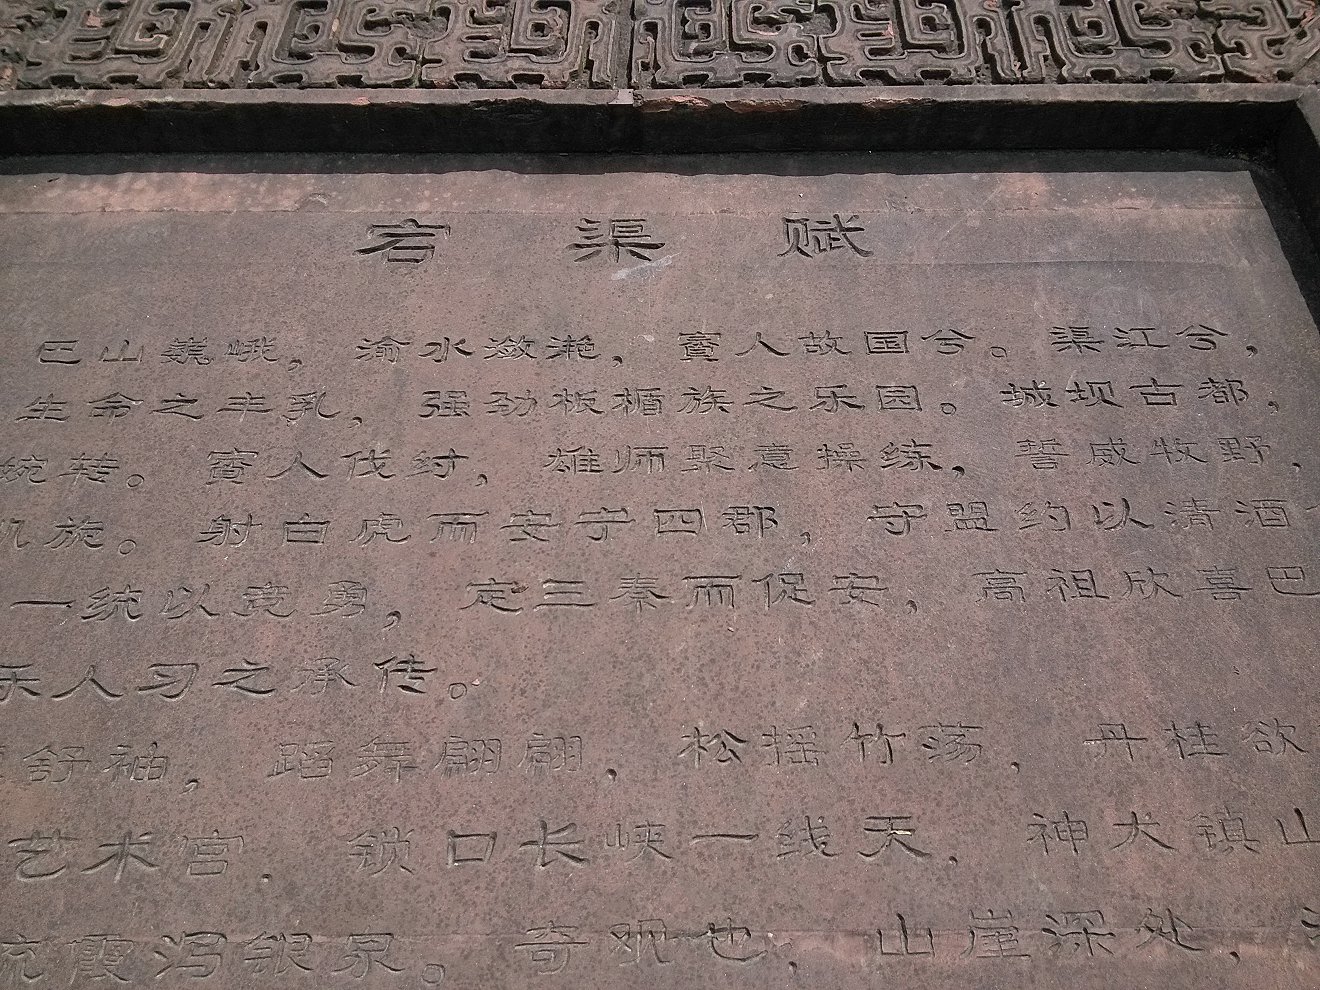 宕渠赋
巴山巍峨，渝水潋滟，賨人故国兮。渠江兮，
生命之丰乳，强劲板楯族之乐园。城坝古都，
婉转。賨人伐纣，雄师聚意操练，誓威牧野，
旋。射白虎而安宁四郡，守盟约以清酒
一统以竞勇，定三秦而促安，高祖欣喜巴
乐人习之承传。
舒袖，蹈舞翩翩，松摇竹荡，丹桂欲
艺术宫，锁口长峡一线天，神犬镇山
霞泻银泉。奇观也，山崖深处，